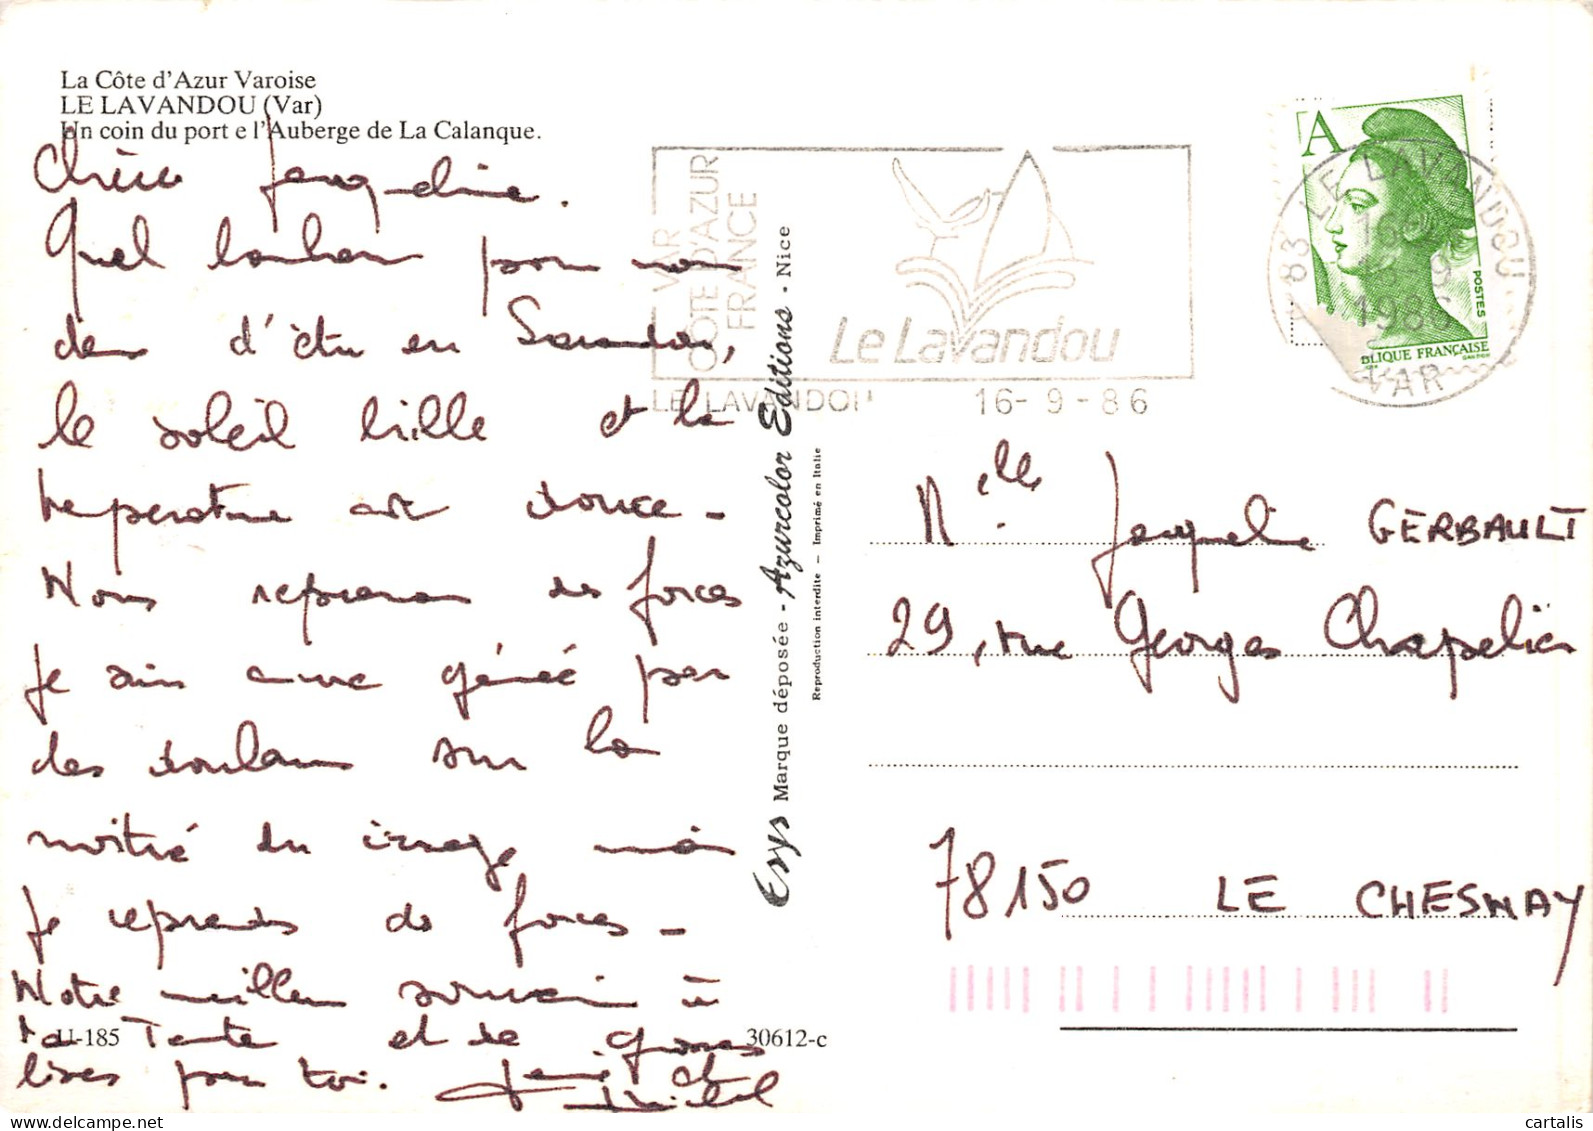 La Côte d'Azur Varoise
LE LAVANDOU (Var)
Un coin du port e l'Auberge de La Calanque.
Chère Jacqueline.
Quel bonheur pour nous
deux d'être en
le soleil brille et la
température est douce -
Nous reprenons des forces
Je suis encore gênée par
des douleurs sur la
moitié du visage mais
je reprends des forces -
Notre meilleur souvenir à
ta Tante et de grosses
bises pour toi.
et Michel
LI-185
30612-c
VAR
COTE D'AZUR
FRANCE
Le Lavandou
LE LAVANDOU 16-9-86
Esys Marque déposée - Azurcolor Editions - Nice
Reproduction interdite - Imprimé en Italie
A
POSTES
BLIQUE FRANÇAISE
83 LE LAVANDOU
16
16-9
1986
VAR
Melle Jacqueline GERBAULT
29, rue Georges Chapelier
78150 LE CHESNAY
cartalis
www.delcampe.net